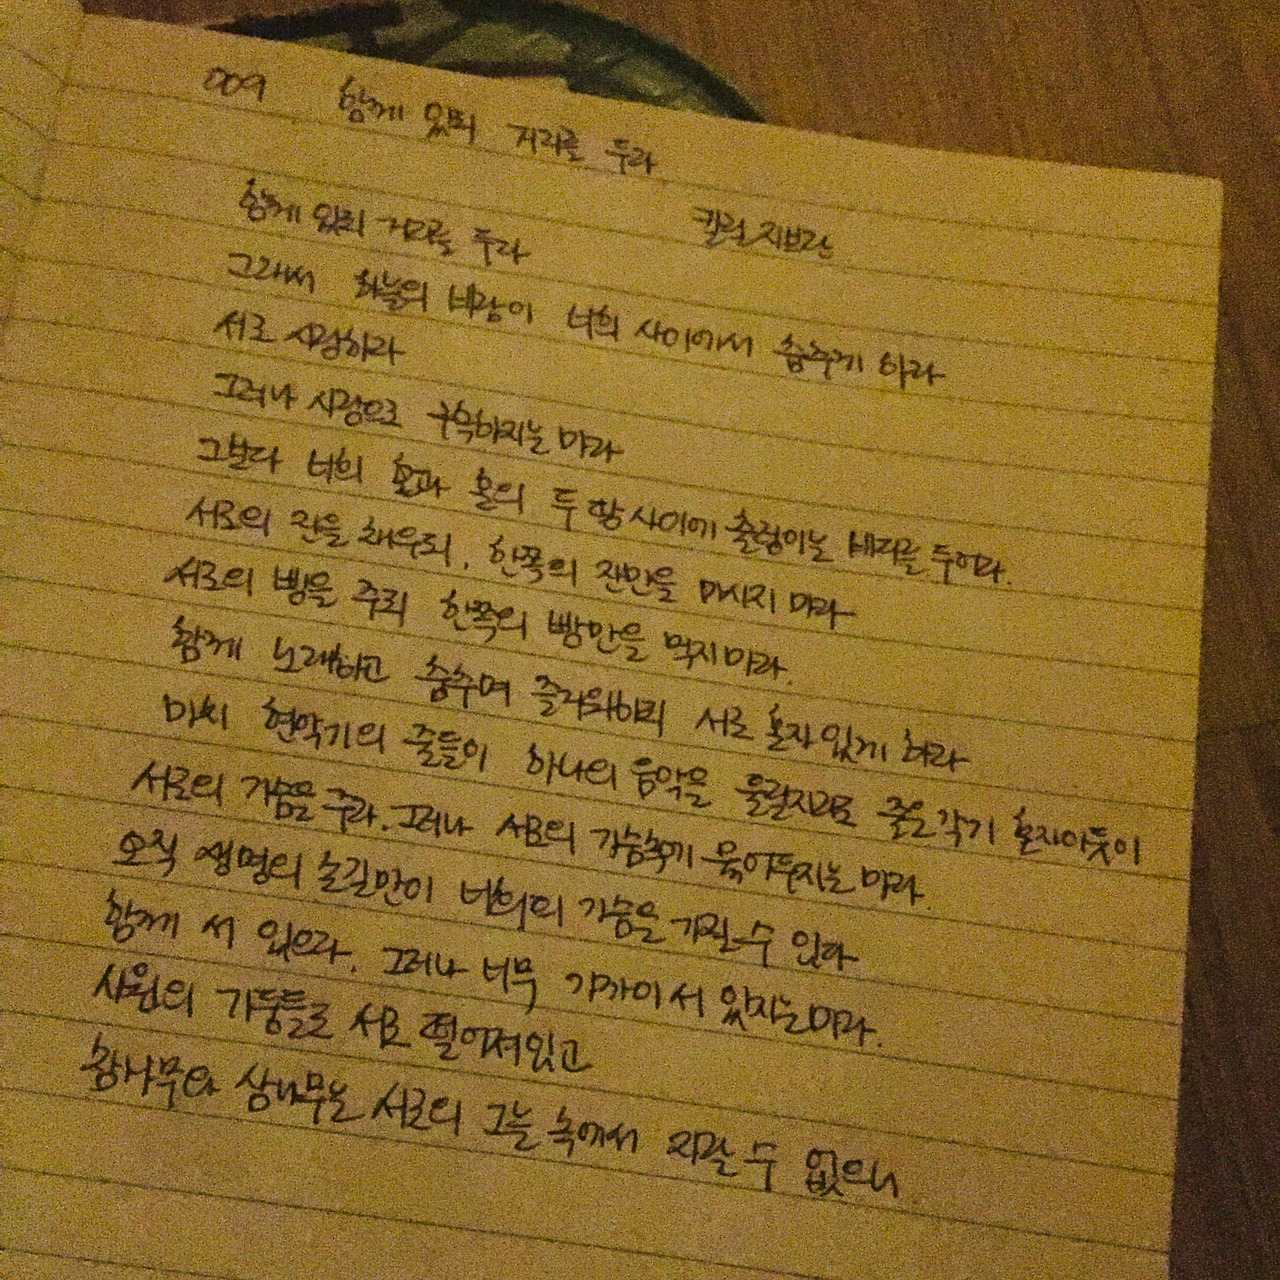 009 함께 있되 거리를 두라
칼릴 지브란
함께 있되 거리를 두라
그래서 하늘의 바람이 너희 사이에서 춤추게 하라
서로 사랑하라
그러나 사랑으로 구속하지는 마라
그보다 너희 혼과 혼의 두 언덕 사이에 출렁이는 바다를 두어라.
서로의 잔을 채우되, 한쪽의 잔만을 마시지 마라
서로의 빵을 주되 한쪽의 빵만을 먹지 마라.
함께 노래하고 춤추며 즐거워하되 서로 혼자 있게 하라
마치 현악기의 줄들이 하나의 음악을 울릴지라도 줄은 각기 혼자이듯이
서로의 가슴을 주라. 그러나 서로의 가슴속에 묶어두지는 마라.
오직 생명의 손길만이 너희의 가슴을 가질 수 있다
함께 서 있으라. 그러나 너무 가까이 서 있지는 마라.
사원의 기둥들도 서로 떨어져 있고
참나무와 삼나무는 서로의 그늘 속에서 자랄 수 없으니